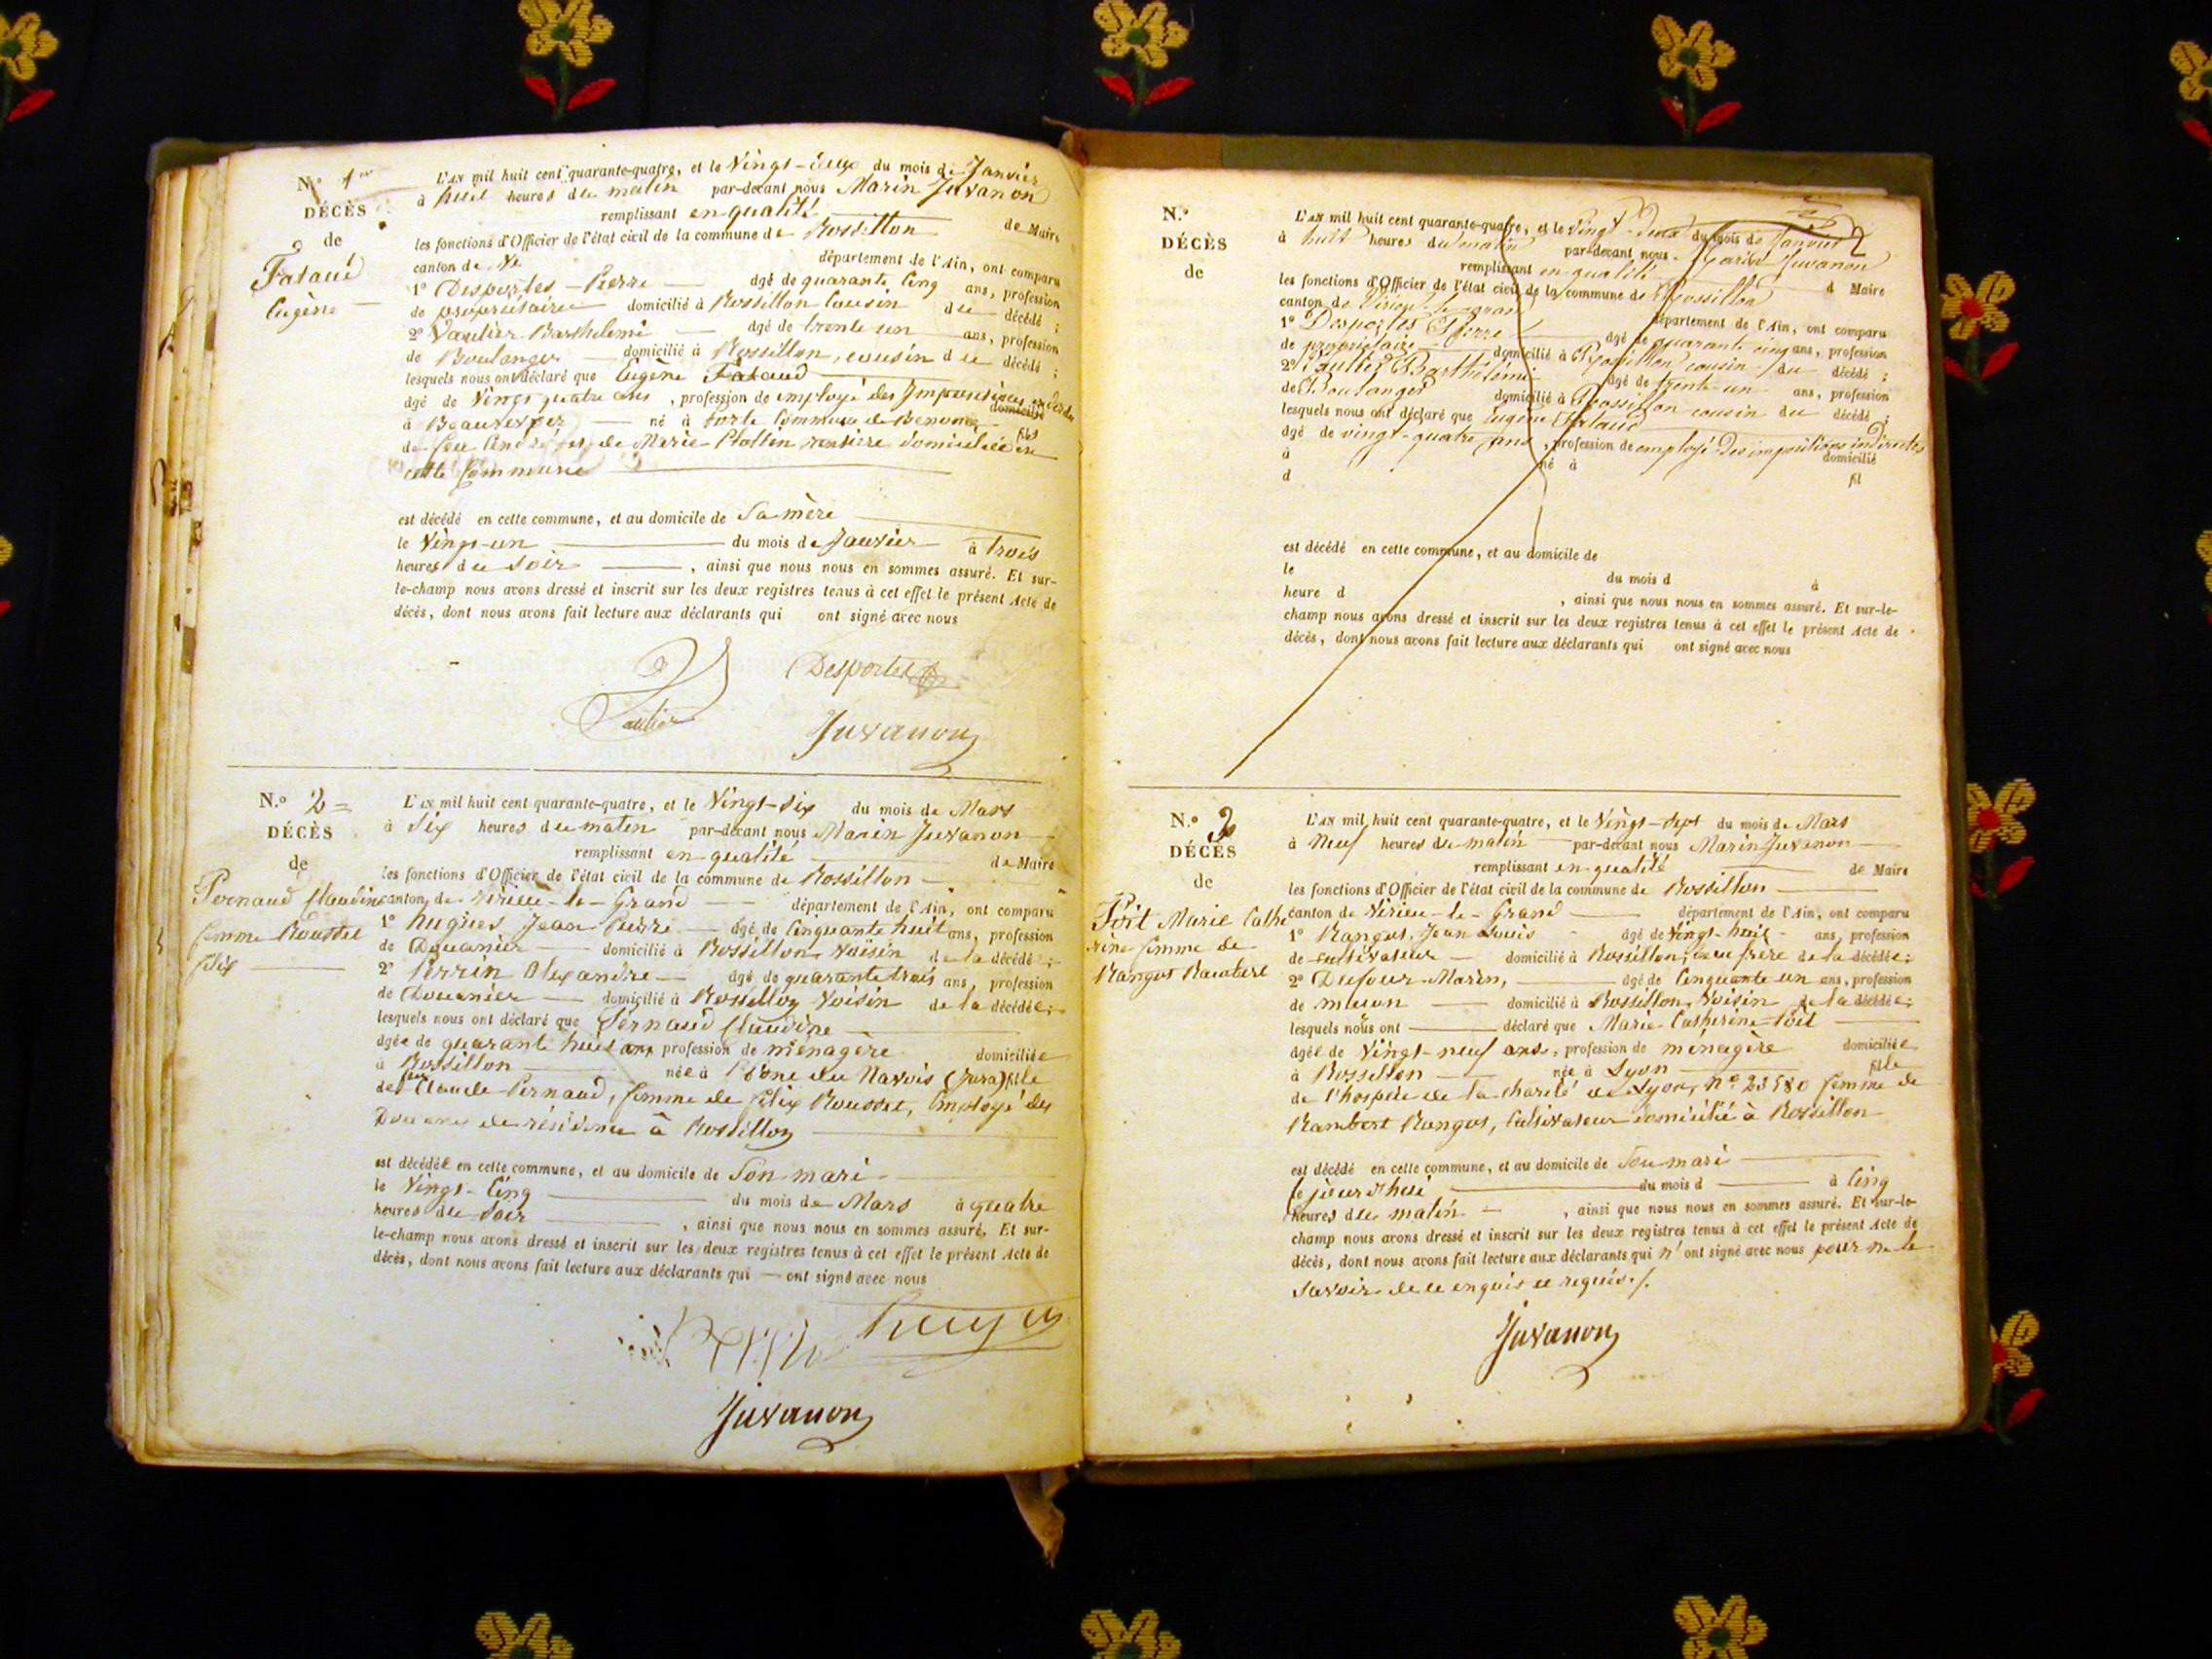 N.° 1er
DÉCÈS
de
Fataud
Eugène
L'AN mil huit cent quarante-quatre, et le Vingt-deux du mois de Janvier
à huit heures du matin par-devant nous Marin Juvanon
remplissant en qualité de Maire
les fonctions d'Officier de l'état civil de la commune de Rossillon
canton de Vi département de l'Ain, ont comparu
1° Desportes Pierre âgé de quarante cinq ans, profession
de propriétaire domicilié à Rossillon cousin du décédé ;
2° Vaulier Barthélemi âgé de trente un ans, profession
de Boulanger domicilié à Rossillon, cousin du décédé ;
lesquels nous ont déclaré que Eugène Fataud
âgé de Vingt quatre ans, profession de employé des Impositions indirectes domicilié
à Beaurepaire né à commune de fils
de feu André et de Marie rentière domiciliée en
cette Commune
est décédé en cette commune, et au domicile de Sa mère
le Vingt-un du mois de Janvier à trois
heures du Soir, ainsi que nous nous en sommes assuré. Et sur-
le-champ nous avons dressé et inscrit sur les deux registres tenus à cet effet le présent Acte de
décès, dont nous avons fait lecture aux déclarants qui ont signé avec nous
Desportes
Vaulier
Juvanon
N.° 2
DÉCÈS
de
Pernaud Claudine
femme Rousset
félix
L'AN mil huit cent quarante-quatre, et le Vingt-Six du mois de Mars
à Six heures du matin par-devant nous Marin Juvanon
remplissant en qualité de Maire
les fonctions d'Officier de l'état civil de la commune de Rossillon
canton de Virieu-le-Grand département de l'Ain, ont comparu
1° hugues Jean Pierre âgé de Cinquante huit ans, profession
de Douanier domicilié à Rossillon Voisin de la décédée ;
2° Perrin Alexandre âgé de quarante trois ans, profession
de Douanier domicilié à Rossillon Voisin de la décédée ;
lesquels nous ont déclaré que Pernaud Claudine
âgée de quarante huit ans profession de ménagère domiciliée
à Rossillon née à du Navois (Jura) fille
de feu Claude Pernaud, femme de félix Rousset, Employé des
Douanes de résidence à Rossillon
est décédée en cette commune, et au domicile de Son mari
le Vingt-Cinq du mois de Mars à quatre
heures du Soir, ainsi que nous nous en sommes assuré, Et sur-
le-champ nous avons dressé et inscrit sur les deux registres tenus à cet effet le présent Acte de
décès, dont nous avons fait lecture aux déclarants qui ont signé avec nous
hugues
Juvanon
2
N.°
DÉCÈS
de
L'AN mil huit cent quarante-quatre, et le Vingt-Deux du mois de Janvier
à huit heures du matin par-devant nous Marin Juvanon
remplissant en qualité d Maire
les fonctions d'Officier de l'état civil de la commune de Rossillon
canton de Virieu le grand département de l'Ain, ont comparu
1° Desportes Pierre âgé de quarante cinq ans, profession
de propriétaire domicilié à Rossillon cousin du décédé ;
2° Vaulier Barthélémi âgé de trente-un ans, profession
de Boulanger domicilié à Rossillon cousin du décédé ;
lesquels nous ont déclaré que Eugène Fataud
âgé de vingt-quatre ans, profession de employé des impositions indirectes domicilié
à né à fil
d
est décédé en cette commune, et au domicile de
le du mois d à
heure d , ainsi que nous nous en sommes assuré. Et sur-le-
champ nous avons dressé et inscrit sur les deux registres tenus à cet effet le présent Acte de
décès, dont nous avons fait lecture aux déclarants qui ont signé avec nous
N.° 3
DÉCÈS
de
Poit Marie Cathe
rine femme de
Rangot Rambert
L'AN mil huit cent quarante-quatre, et le Vingt-Sept du mois de Mars
à Neuf heures du matin par-devant nous Marin Juvanon
remplissant en qualité de Maire
les fonctions d'Officier de l'état civil de la commune de Rossillon
canton de Virieu-le-Grand département de l'Ain, ont comparu
1° Rangot Jean Louis âgé de Vingt-huit ans, profession
de cultivateur domicilié à Rossillon, beau frère de la décédée ;
2° Dufour Marin, âgé de Cinquante un ans, profession
de maçon domicilié à Rossillon, Voisin de la décédée ;
lesquels nous ont déclaré que Marie Catherine Poit
âgée de Vingt-neuf ans, profession de ménagère domiciliée
à Rossillon née à Lyon fille
de l'hospice de la charité de Lyon, N° 23580 femme de
Rambert Rangot, Cultivateur domicilié à Rossillon
est décédé en cette commune, et au domicile de Son mari
le jourd'hui du mois d à Cinq
heures du matin, ainsi que nous nous en sommes assuré. Et sur-le-
champ nous avons dressé et inscrit sur les deux registres tenus à cet effet le présent Acte de
décès, dont nous avons fait lecture aux déclarants qui n'ont signé avec nous pour ne le
Savoir de ce enquis et requis./.
Juvanon